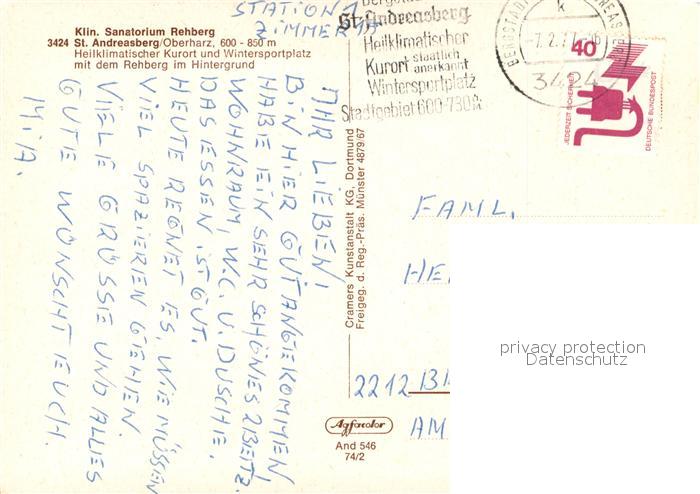 Klin. Sanatorium Rehberg
3424 St. Andreasberg/Oberharz, 600 - 850 m
Heilklimatischer Kurort und Wintersportplatz
mit dem Rehberg im Hintergrund
STATION 1
ZIMMER 14
St. Andreasberg
Heilklimatischer
Kurort staatlich anerkannt
Wintersportplatz
Stadtgebiet 600-730
BERGSTADT
3424
40
JEDERZEIT SICHERHEIT
DEUTSCHE BUNDESPOST
IHR LIEBEN!
BIN HIER GUT ANGEKOMMEN
HABE EIN SEHR SCHÖNES 2BEITZ.
WOHNRAUM, W.C. U. DUSCHE,
DAS ESSEN IST GUT.
HEUTE REGNET ES, WIE MÜSSEN
VIEL SPAZIEREN GEHEN.
VIELE GRÜSSE UND ALLES
GUTE WÜNSCHT EUCH.
MIA.
Cramers Kunstanstalt KG, Dortmund
Freigeg. d. Reg.-Präs. Münster 4879/67
FAML.
HE
2212
AM
privacy protection
Datenschutz
Agfacolor
And 546
74/2